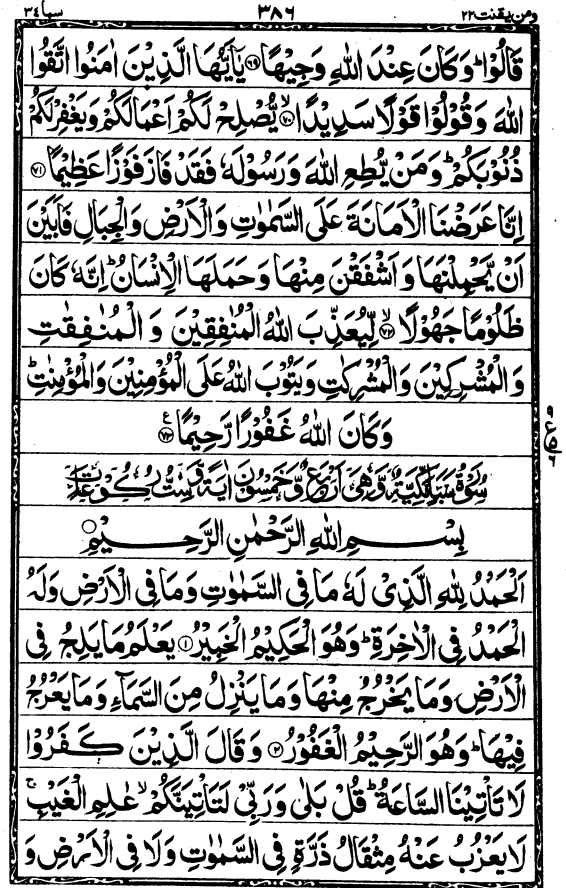 ومن يقنت ٢٢ ٣٨٦ سبا ٣٤
قَالُوْا ؕ وَ كَانَ عِنْدَ اللّٰهِ وَجِیْهًا ﴿۶۹﴾ یٰۤاَیُّهَا الَّذِیْنَ اٰمَنُوا اتَّقُوا
اللّٰهَ وَ قُوْلُوْا قَوْلًا سَدِیْدًا ﴿۷۰﴾ۙ یُّصْلِحْ لَكُمْ اَعْمَالَكُمْ وَ یَغْفِرْ لَكُمْ
ذُنُوْبَكُمْ ؕ وَ مَنْ یُّطِعِ اللّٰهَ وَ رَسُوْلَهٗ فَقَدْ فَازَ فَوْزًا عَظِیْمًا ﴿۷۱﴾
اِنَّا عَرَضْنَا الْاَمَانَةَ عَلَی السَّمٰوٰتِ وَ الْاَرْضِ وَ الْجِبَالِ فَاَبَیْنَ
اَنْ یَّحْمِلْنَهَا وَ اَشْفَقْنَ مِنْهَا وَ حَمَلَهَا الْاِنْسَانُ ؕ اِنَّهٗ كَانَ
ظَلُوْمًا جَهُوْلًا ﴿۷۲﴾ۙ لِّیُعَذِّبَ اللّٰهُ الْمُنٰفِقِیْنَ وَ الْمُنٰفِقٰتِ
وَ الْمُشْرِكِیْنَ وَ الْمُشْرِكٰتِ وَ یَتُوْبَ اللّٰهُ عَلَی الْمُؤْمِنِیْنَ وَ الْمُؤْمِنٰتِ ؕ
وَ كَانَ اللّٰهُ غَفُوْرًا رَّحِیْمًا ﴿۷۳﴾ ع
سُوْرَةُ سَبَاٍ مَّكِّیَّةٌ وَّ هِیَ اَرْبَعٌ وَّ خَمْسُوْنَ اٰیَةً وَّ سِتُّ رُكُوْعَاتٍ
بِسْمِ اللّٰهِ الرَّحْمٰنِ الرَّحِیْمِ
اَلْحَمْدُ لِلّٰهِ الَّذِیْ لَهٗ مَا فِی السَّمٰوٰتِ وَ مَا فِی الْاَرْضِ وَ لَهُ
الْحَمْدُ فِی الْاٰخِرَةِ ؕ وَ هُوَ الْحَكِیْمُ الْخَبِیْرُ ﴿۱﴾ یَعْلَمُ مَا یَلِجُ فِی
الْاَرْضِ وَ مَا یَخْرُجُ مِنْهَا وَ مَا یَنْزِلُ مِنَ السَّمَآءِ وَ مَا یَعْرُجُ
فِیْهَا ؕ وَ هُوَ الرَّحِیْمُ الْغَفُوْرُ ﴿۲﴾ وَ قَالَ الَّذِیْنَ كَفَرُوْا
لَا تَاْتِیْنَا السَّاعَةُ ؕ قُلْ بَلٰی وَ رَبِّیْ لَتَاْتِیَنَّكُمْ ۙ عٰلِمِ الْغَیْبِ ۚ
لَا یَعْزُبُ عَنْهُ مِثْقَالُ ذَرَّةٍ فِی السَّمٰوٰتِ وَ لَا فِی الْاَرْضِ وَ